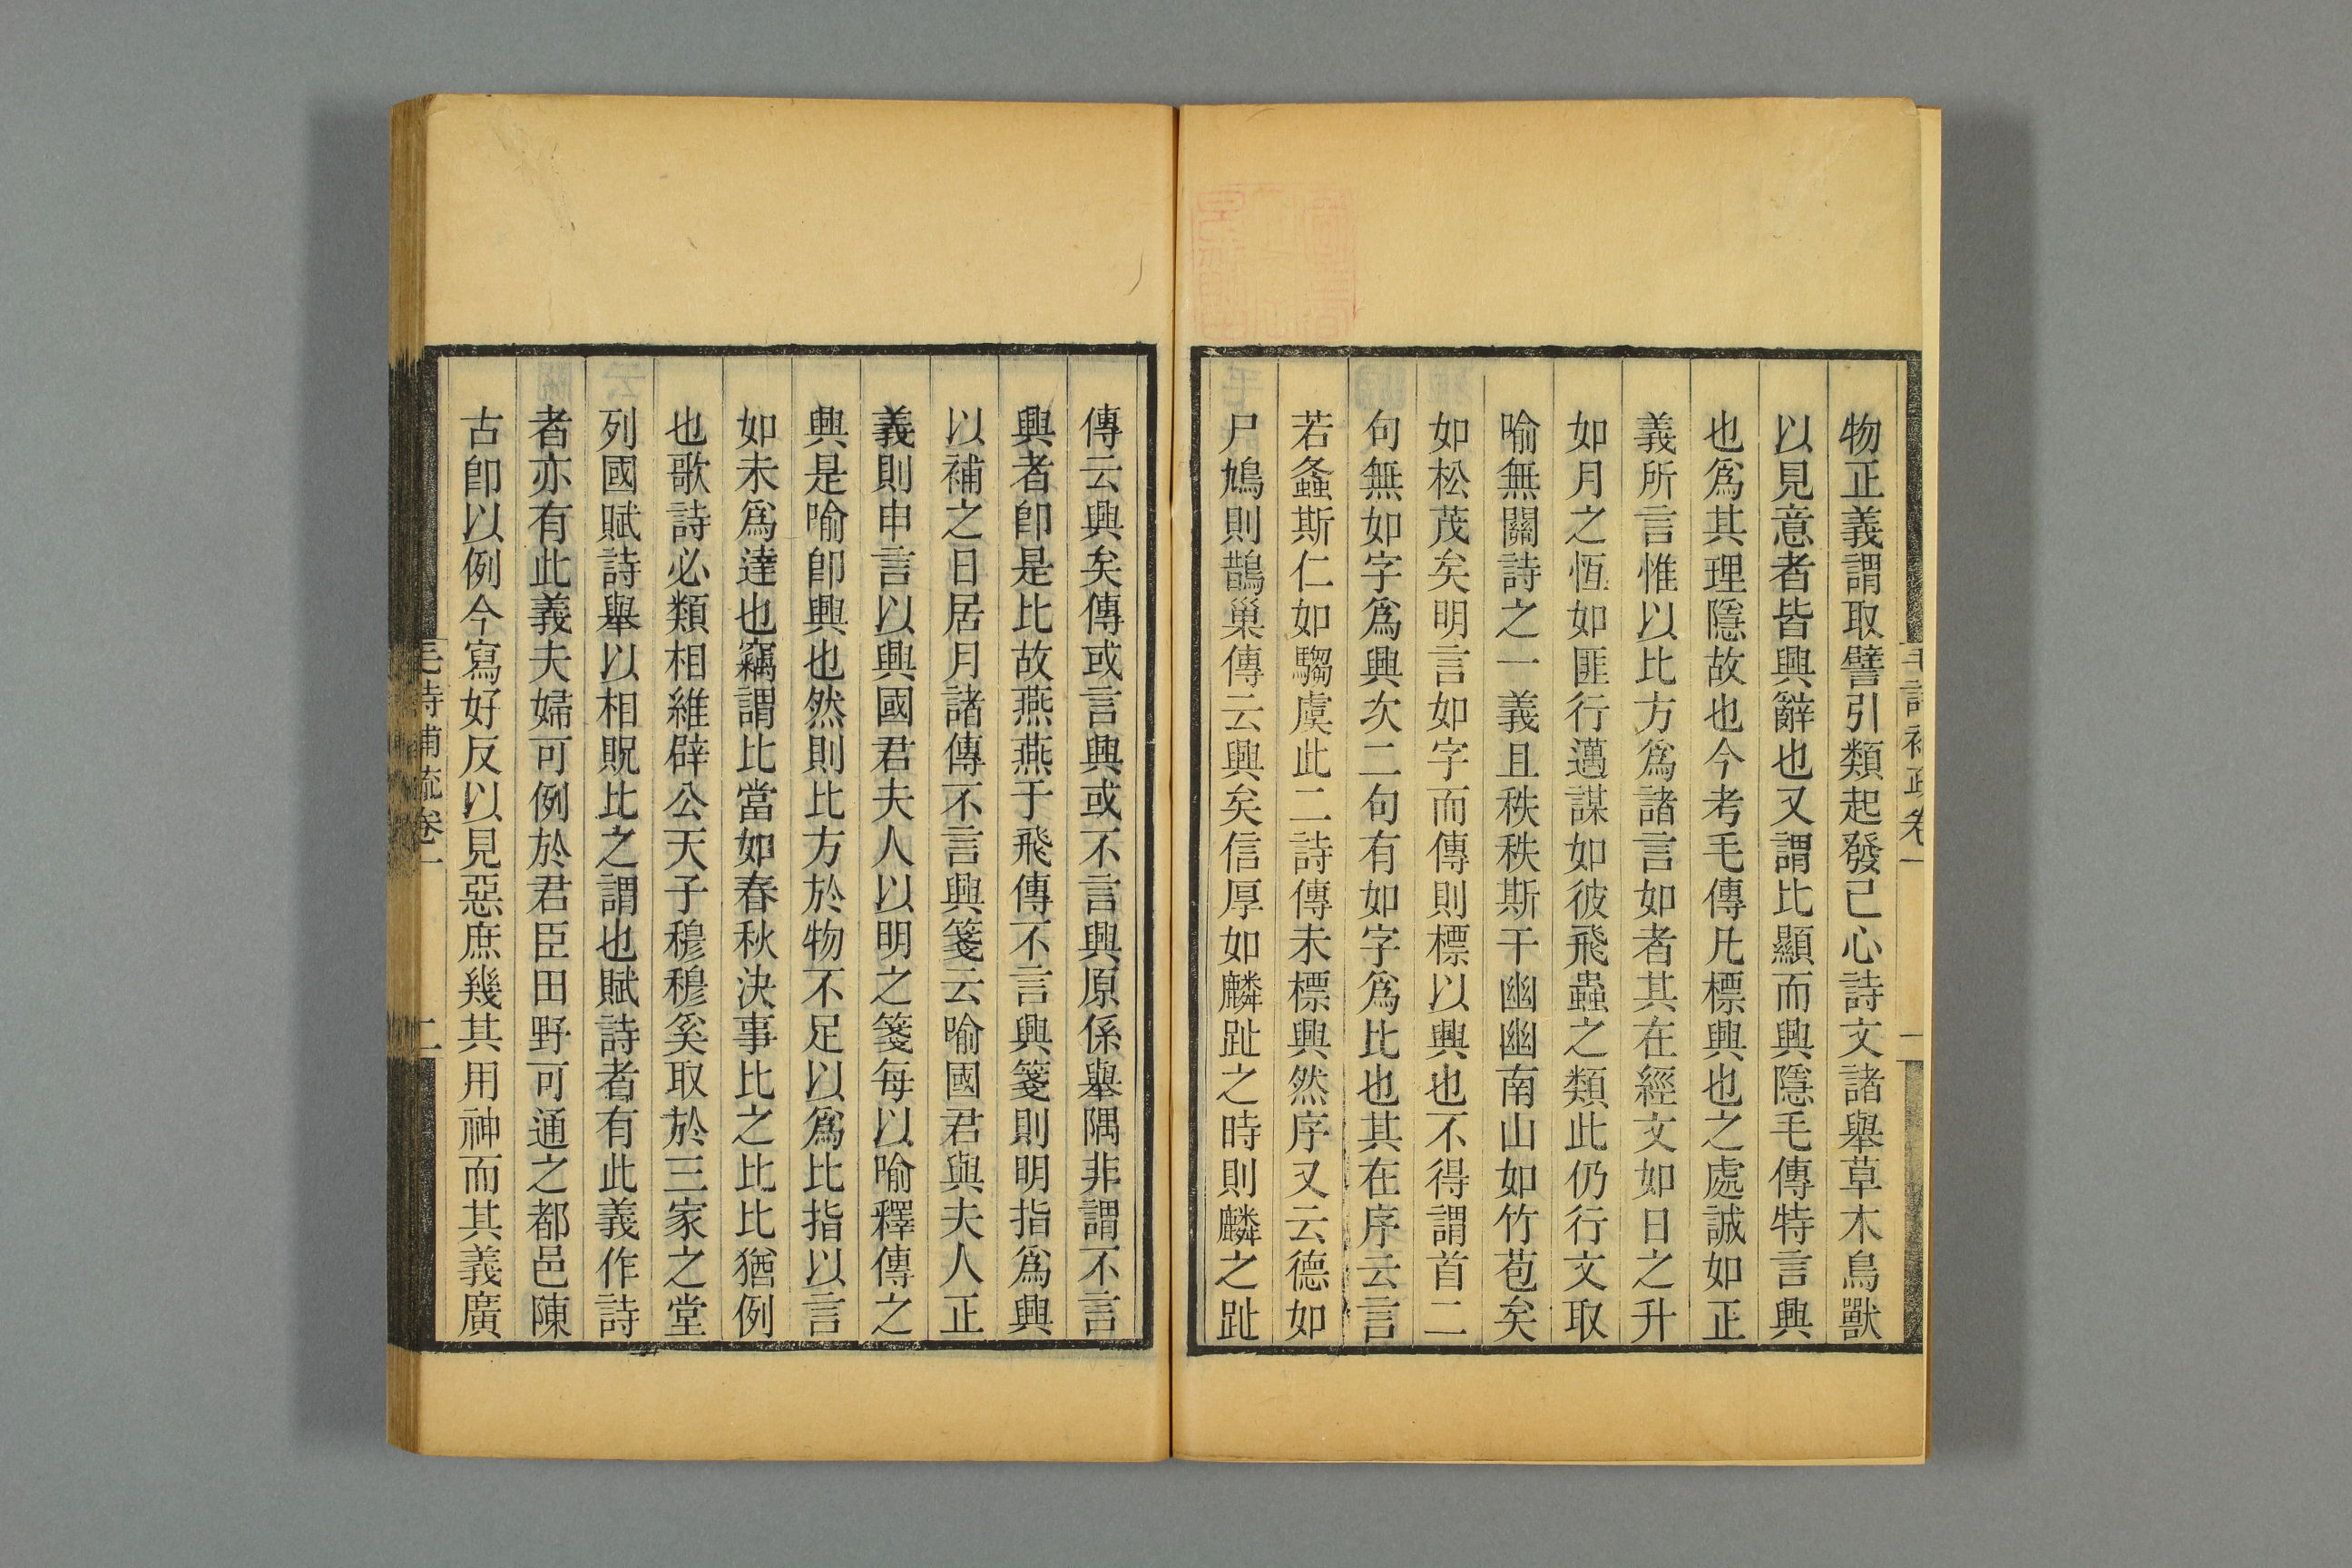 物正義謂取譬引類起發己心詩文諸舉草木鳥獸
以見意者皆興辭也又謂比顯而興隱毛傳特言興
也爲其理隱故也今考毛傳凡標興也之處誠如正
義所言惟以比方爲諸言如者其在經文如日之升
如月之恆如匪行邁謀如彼飛蟲之類此仍行文取
喻無關詩之一義且秩秩斯干幽幽南山如竹苞矣
如松茂矣明言如字而傳則標以興也不得謂首二
句無如字爲興次二句有如字爲比也其在序云言
若螽斯仁如騶虞此二詩傳未標興然序又云德如
尸鳩則鵲巢傳云興矣信厚如麟趾之時則麟之趾
傳云興矣傳或言興或不言興原係舉隅非謂不言
興者卽是比故燕燕于飛傳不言興箋則明指爲興
以補之日居月諸傳不言興箋云喻國君與夫人正
義則申言以興國君夫人以明之箋每以喻釋傳之
興是喻卽興也然則比方於物不足以爲比指以言
如未爲達也竊謂比當如春秋決事比之比比猶例
也歌詩必類相維辟公天子穆穆奚取於三家之堂
列國賦詩舉以相貺比之謂也賦詩者有此義作詩
者亦有此義夫婦可例於君臣田野可通之都邑陳
古卽以例今寫好反以見惡庶幾其用神而其義廣
毛詩補疏卷一
二